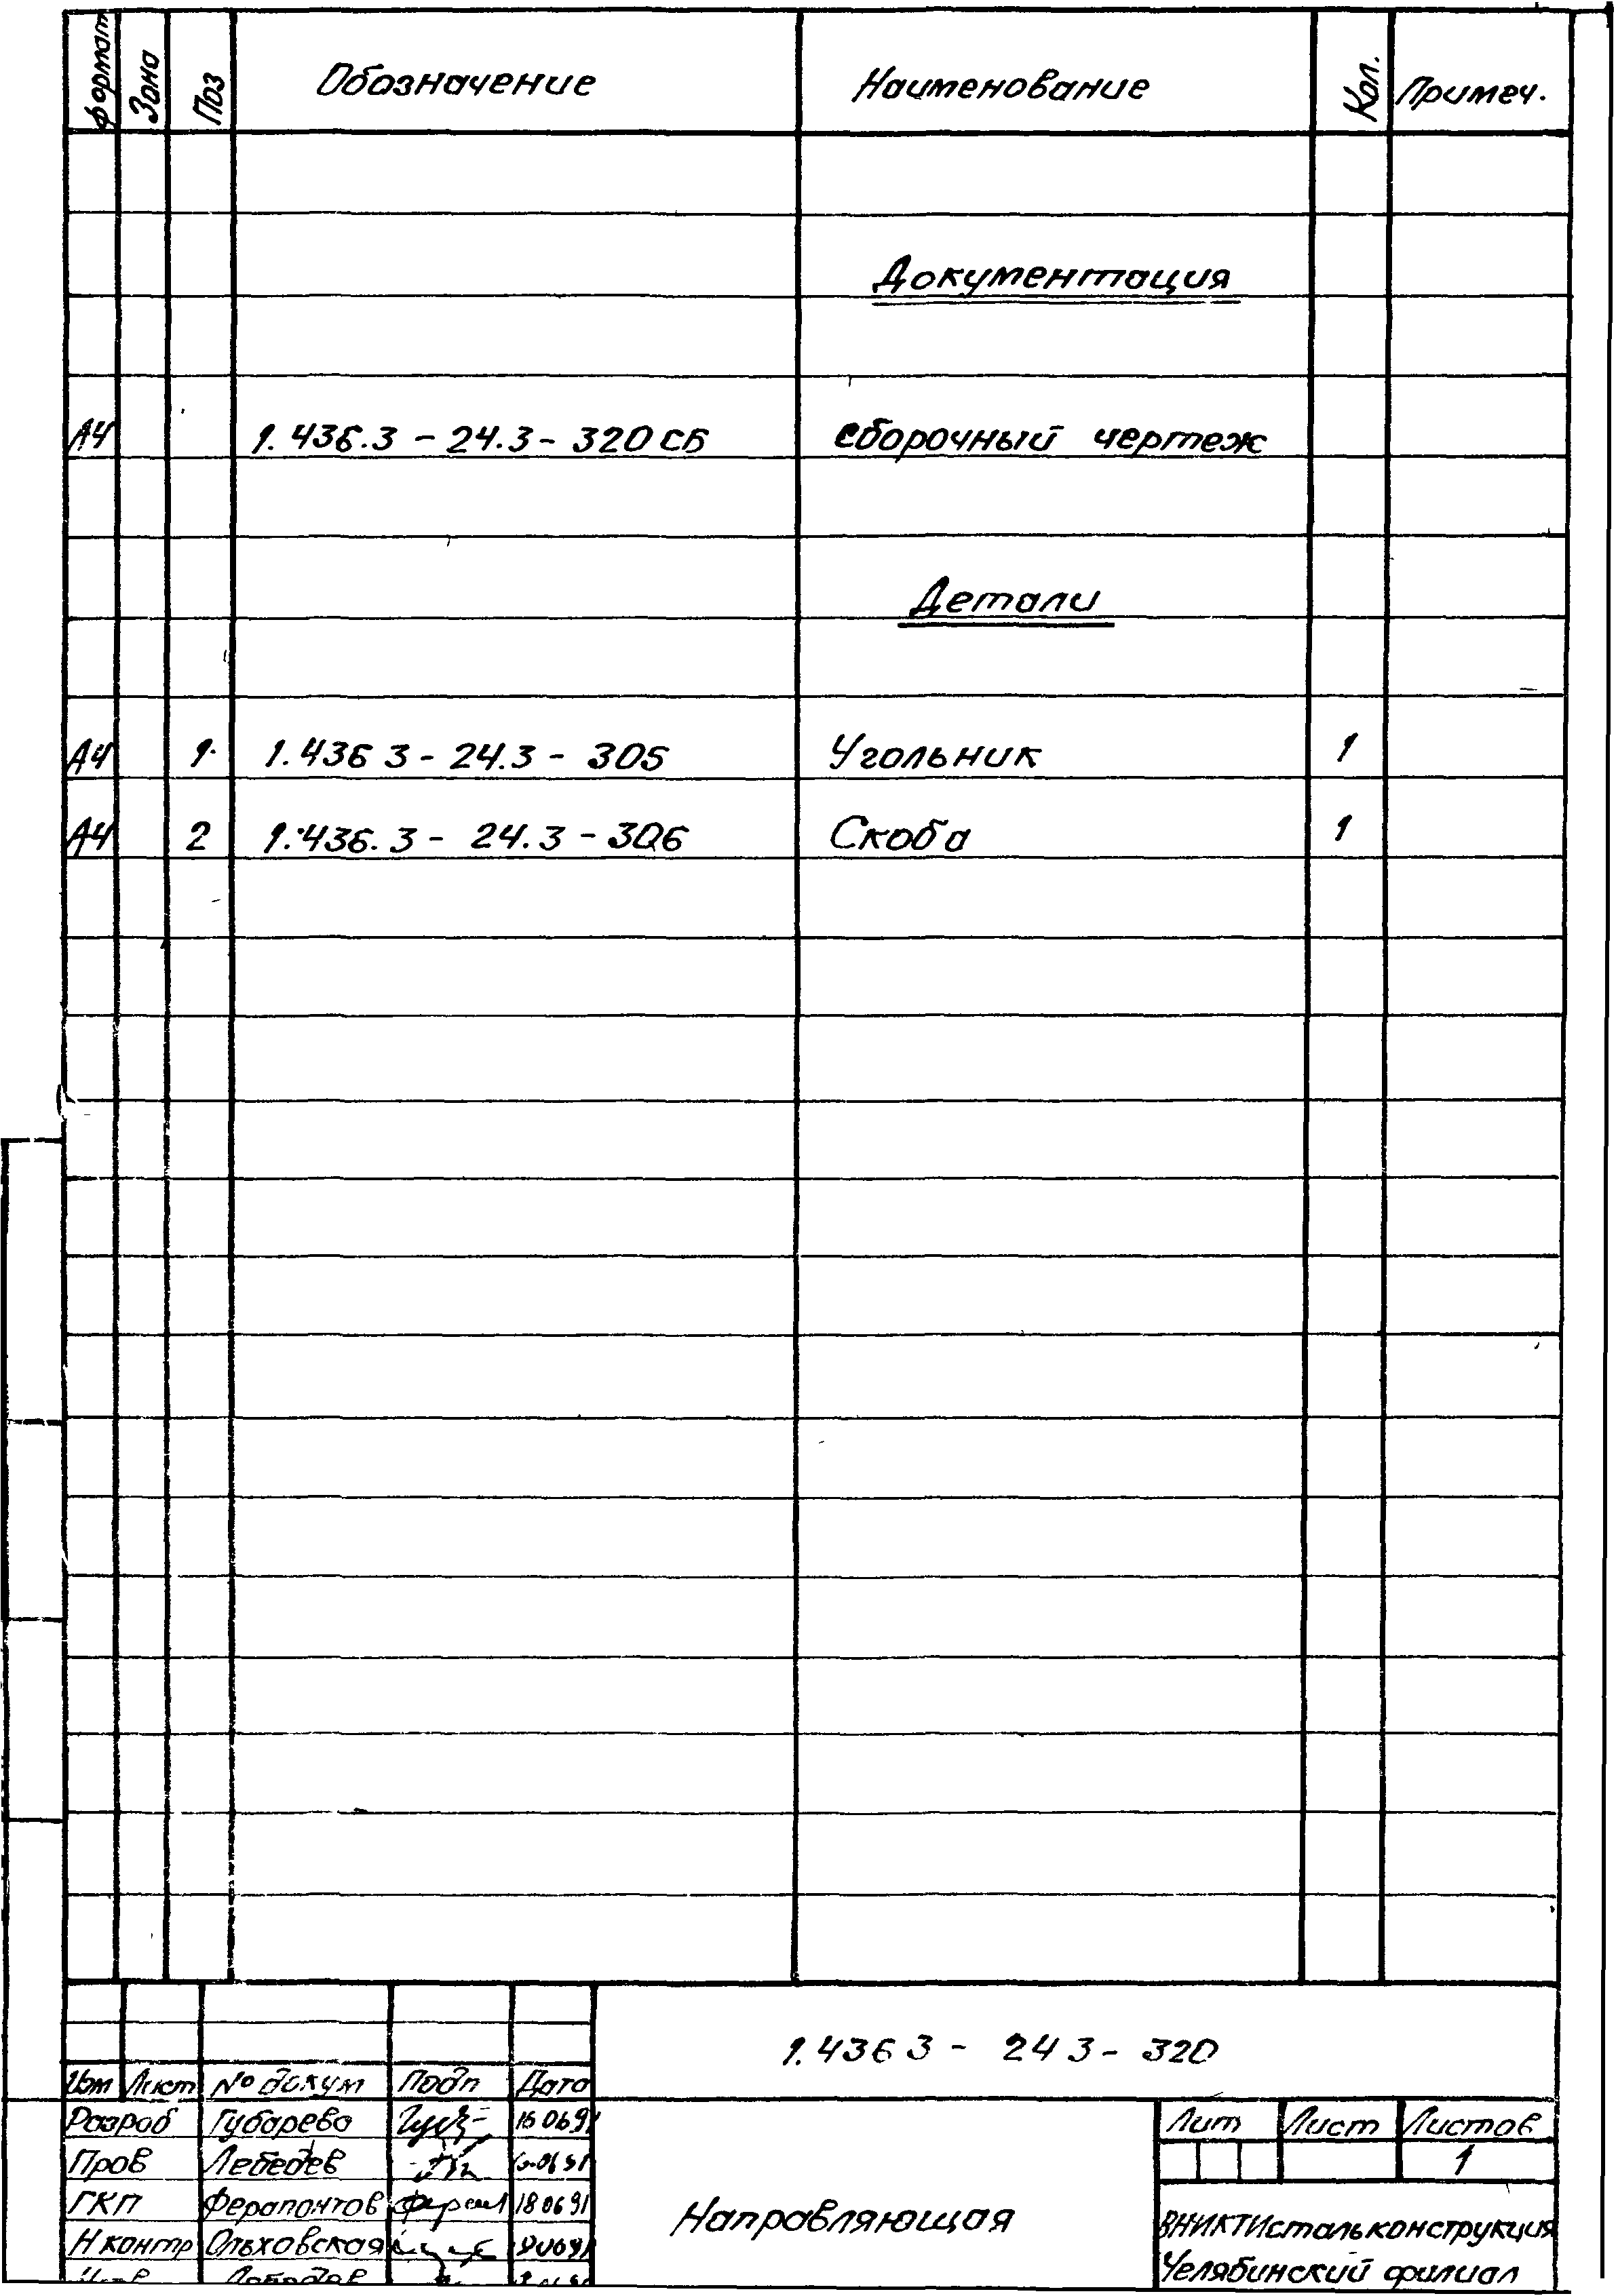 Формат Зона Поз Обозначение Наименование Кол. Примеч.
Документация
А4 1.436.3 - 24.3 - 320 СБ Сборочный чертеж
Детали
А4 1. 1.436 3 - 24.3 - 305 Угольник 1
А4 2 1.436.3 - 24.3 - 306 Скоба 1
1.436 3 - 24 3 - 320
Изм Лист № докум Подп Дата
Разраб Губарева 16 06 91 Лит Лист Листов
Пров Лебедев 1
ГКП Ферапонтов 18 06 91
Направляющая
Н контр Ольховская ВНИКТИстальконструкция
Лебедев Челябинский филиал